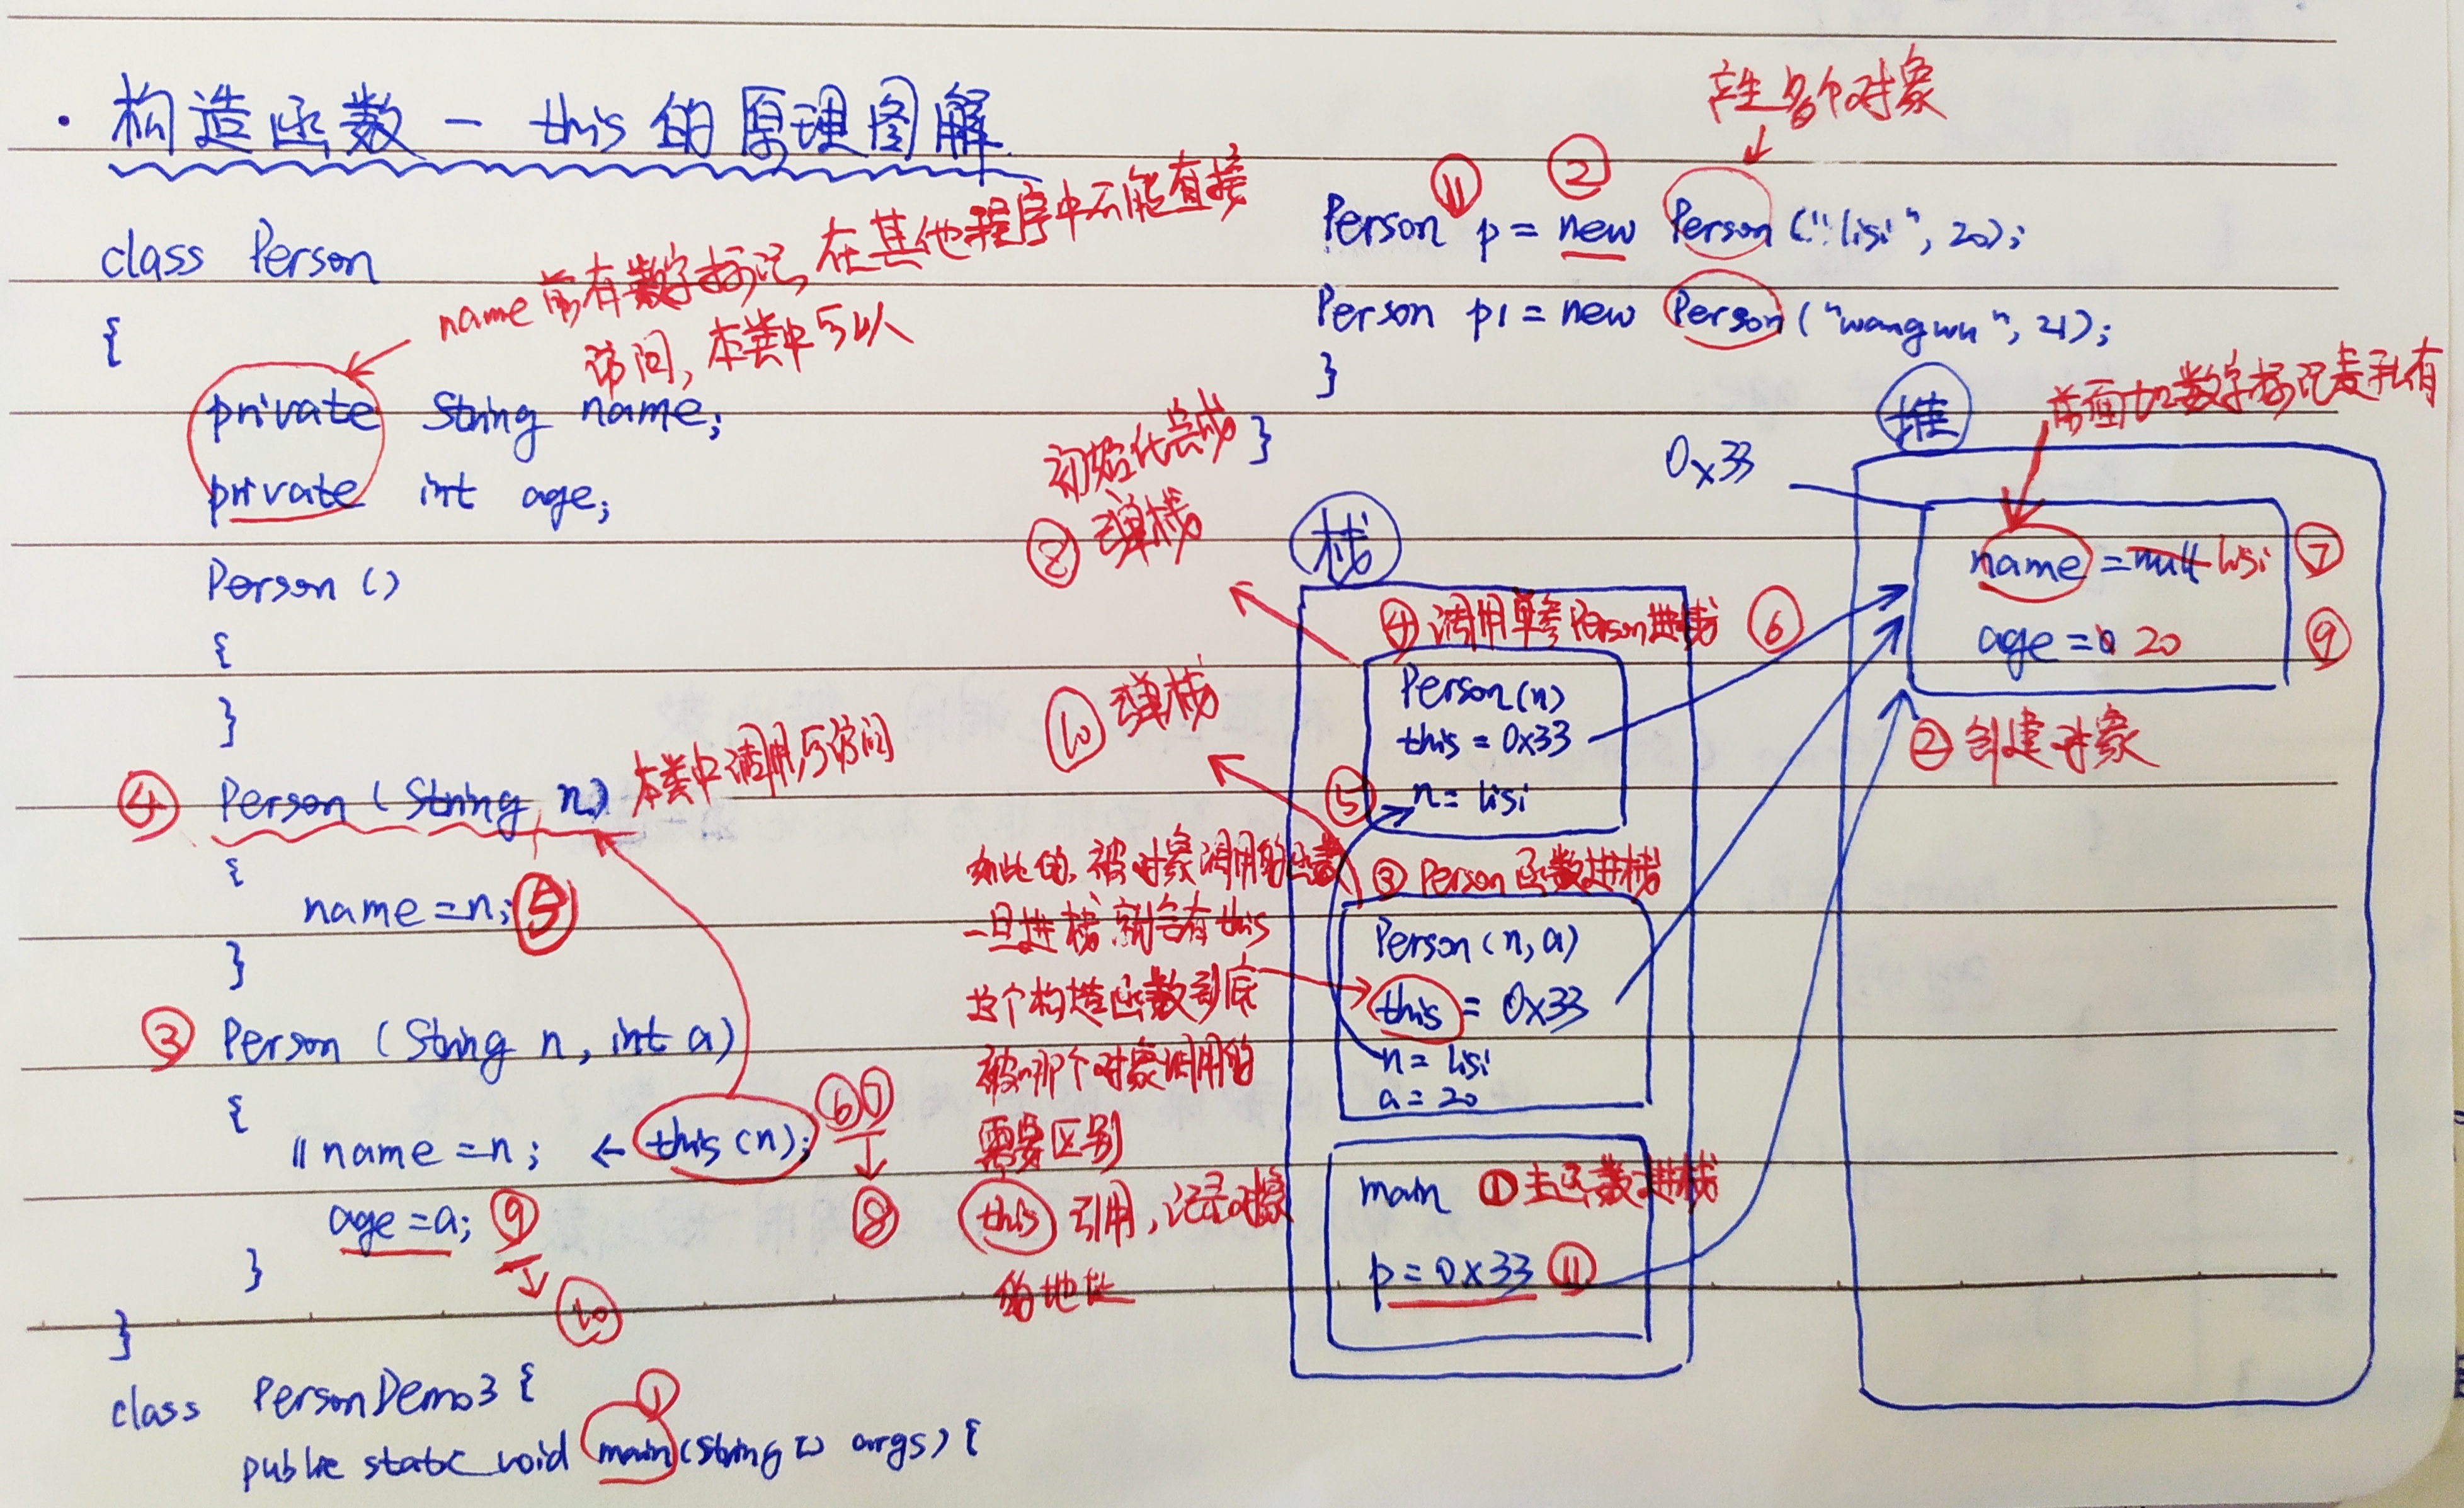 · 构造函数 - this的原理图解
class Person
{
name前有数字标记, 在其他程序中不能直接
访问, 本类中可以
private String name;
private int age;
Person ()
{
}
④ Person (String n) 本类中调用,可访问
{
name=n; ⑤
}
③ Person (String n, int a)
{
//name=n; ← this(n); ⑥⑦
↓
⑧
age=a; ⑨
↓
⑩
}
}
class PersonDemo3 {
①
public static void main(String[] args) {
产生多个对象
↓
⑪ ②
Person p = new Person ("lisi", 20);
Person p1 = new Person ("wangwu", 21);
}
}
初始化完成
⑧ 弹栈
⑩ 弹栈
如此的, 被对象调用的函数
一旦进栈, 就会有this
这个构造函数到底
被哪个对象调用的
需要区别
this 引用, 记录对象
的地址
栈
④ 调用单参Person进栈 ⑥
Person(n)
this = 0x33
⑤ n = lisi
③ Person函数进栈
Person(n,a)
this = 0x33
n = lisi
a = 20
main ①主函数进栈
p = 0x33 ⑪
堆
前面加数字标记表私有
0x33
name = null lisi ⑦
age = 0 20 ⑨
② 创建对象